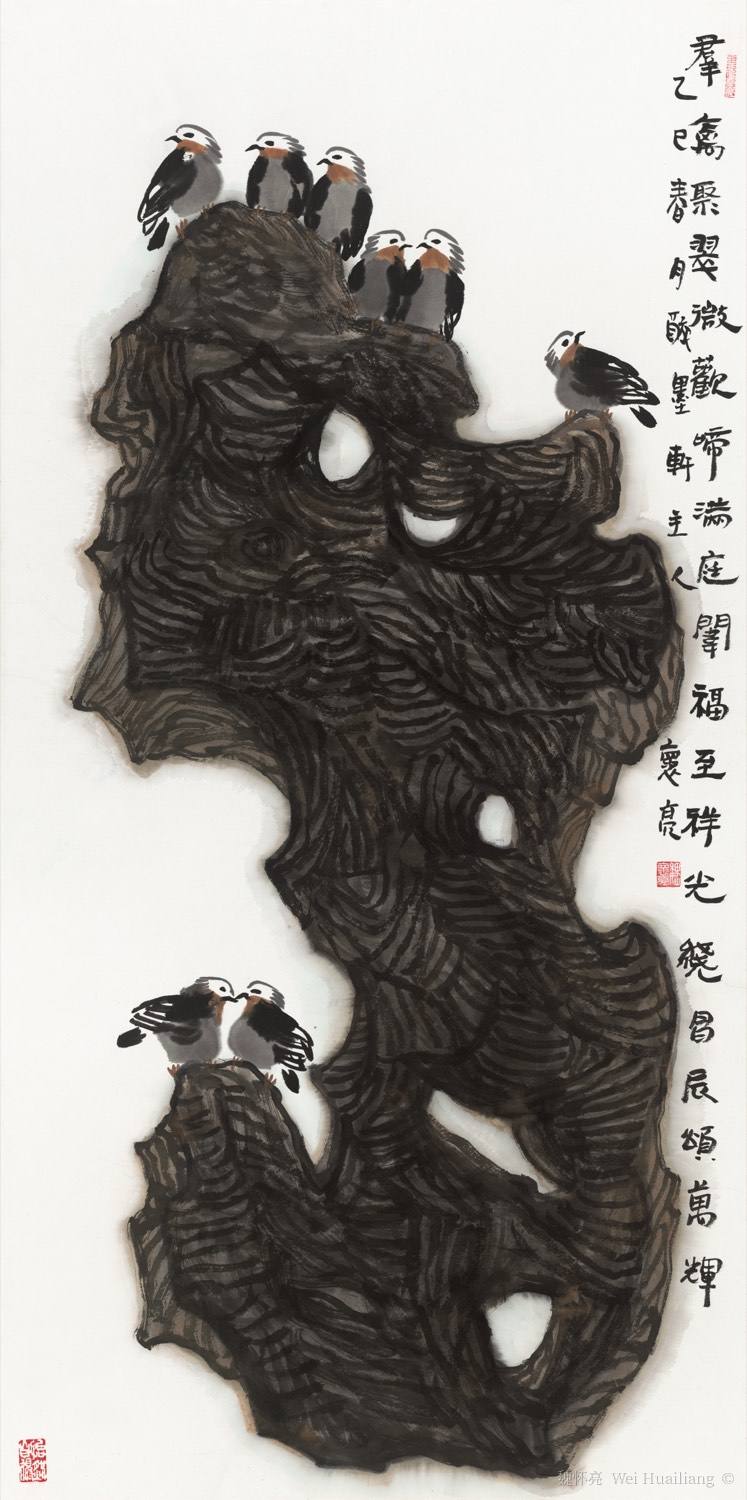 羣禽聚翠微歡啼滿庭闈福至祥光繞昌辰頌萬輝
乙巳春月墨軒主人懷亮
魏怀亮 Wei Huailiang ©